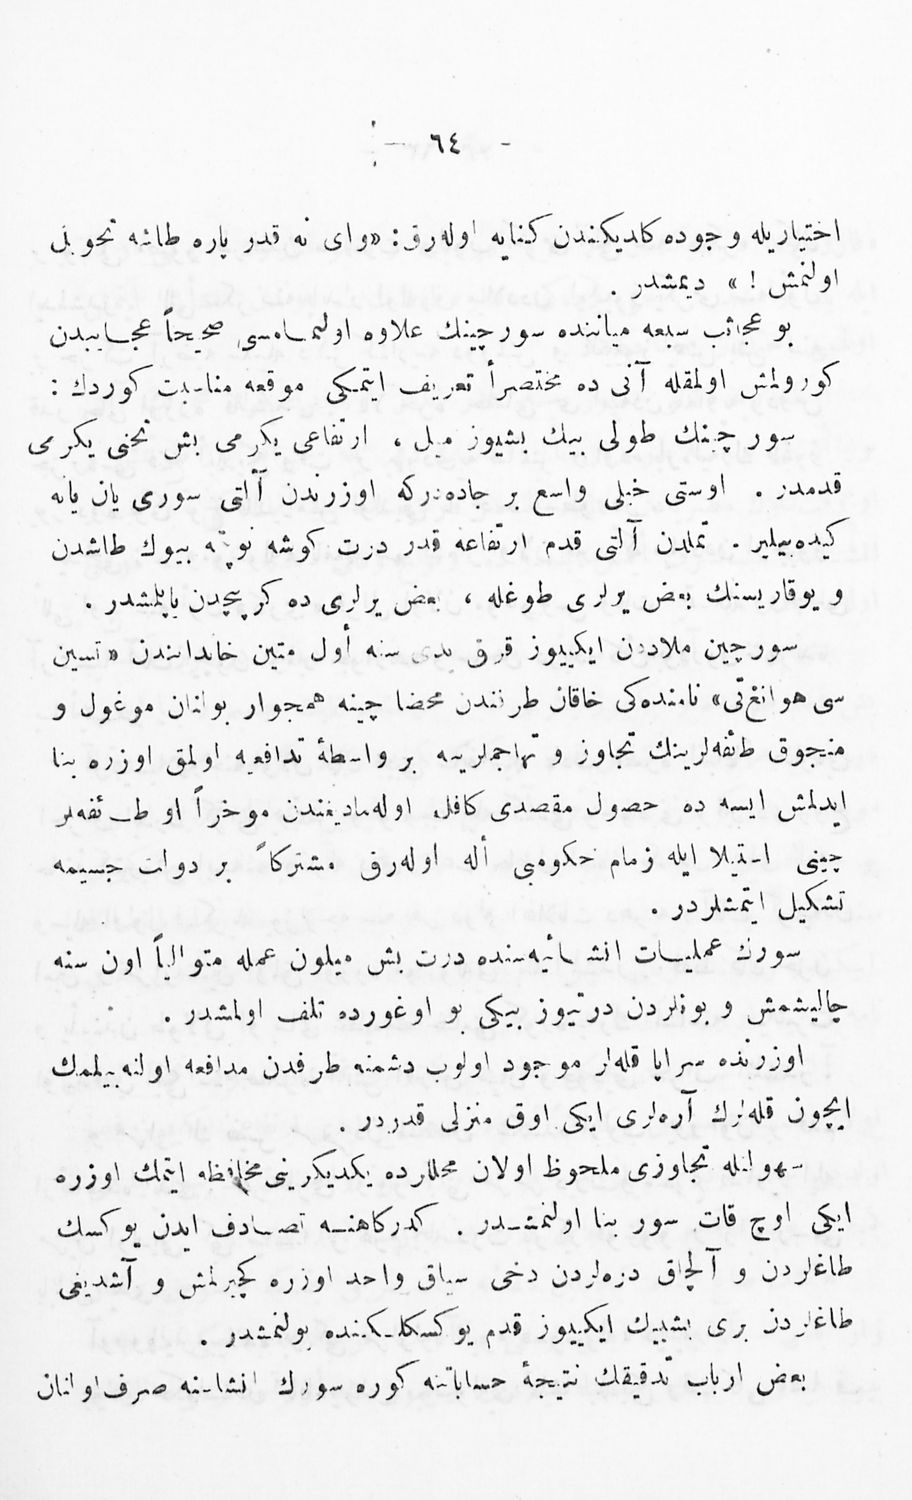 — ٦٤ —
اختیاریله وجوده کلدیکندن کنایه اوله‌رق: «وای نه قدر پاره طاشه تحویل
اولنمش ! » دیمشدر .
بو عجائب سبعه میاننده سورچینك علاوه اولنمامسی صحیحاً عجایبدن
کورولمش اولمقله آنی ده مختصراً تعریف ایتمکی موقعه مناسبت کوردك :
سورچینك طولی بیك بشیوز میل ، ارتفاعی یکرمی بش ثخنی یکرمی
قدمدر . اوستی خیلی واسع بر جاده‌درکه اوزرندن آلتی سوری یان یانه
کیده‌بیلیر . تملدن آلتی قدم ارتفاعه قدر درت کوشه بیوك طاشدن
و یوقاریسنك بعض یرلری طوغله ، بعض یرلری ده کرپیچدن یاپلمشدر .
سورچین میلاددن ایکییوز قرق یدی سنه أول متین خاندانندن «تسین
سی هوانغ‌تی» نامنده‌کی خاقان طرفندن محضا چینه همجوار بولنان موغول و
منجوق طائفه‌لرینك تجاوز و تهاجملرینه بر واسطهٔ تدافعیه اولمق اوزره بنا
ایدلمش ایسه ده حصول مقصدی کافل اوله‌مادیغندن موخراً او طائفه‌لر
چینی استیلا ایله زمام حکومتی أله اوله‌رق مشترکاً بر دولت جسیمه
تشکیل ایتمشلردر .
سورك عملیات انشائیه‌سنده درت بش میلون عمله متوالیاً اون سنه
چالیشمش و بونلردن درتیوز بیکی بو اوغورده تلف اولمشدر .
اوزرنده سراپا قله‌لر موجود اولوب دشمنه طرفدن مدافعه اولنه‌بیلمك
ایچون قله‌لرك آره‌لری ایکی اوق منزلی قدردر .
سهولتله تجاوزی ملحوظ اولان محللرده یکدیکرینی محافظه ایتمك اوزره
ایکی اوچ قات سور بنا اولنمشدر . کذرکاهنه تصادف ایدن یوکسك
طاغلردن و آلچاق دره‌لردن دخی سیاق واحد اوزره کچیرلمش و آشدیغی
طاغلردن بری بشبیك ایکییوز قدم یوکسکلکنده بولنمشدر .
بعض ارباب تدقیقك نتیجهٔ حساباتنه کوره سورك انشاسنه صرف اولنان